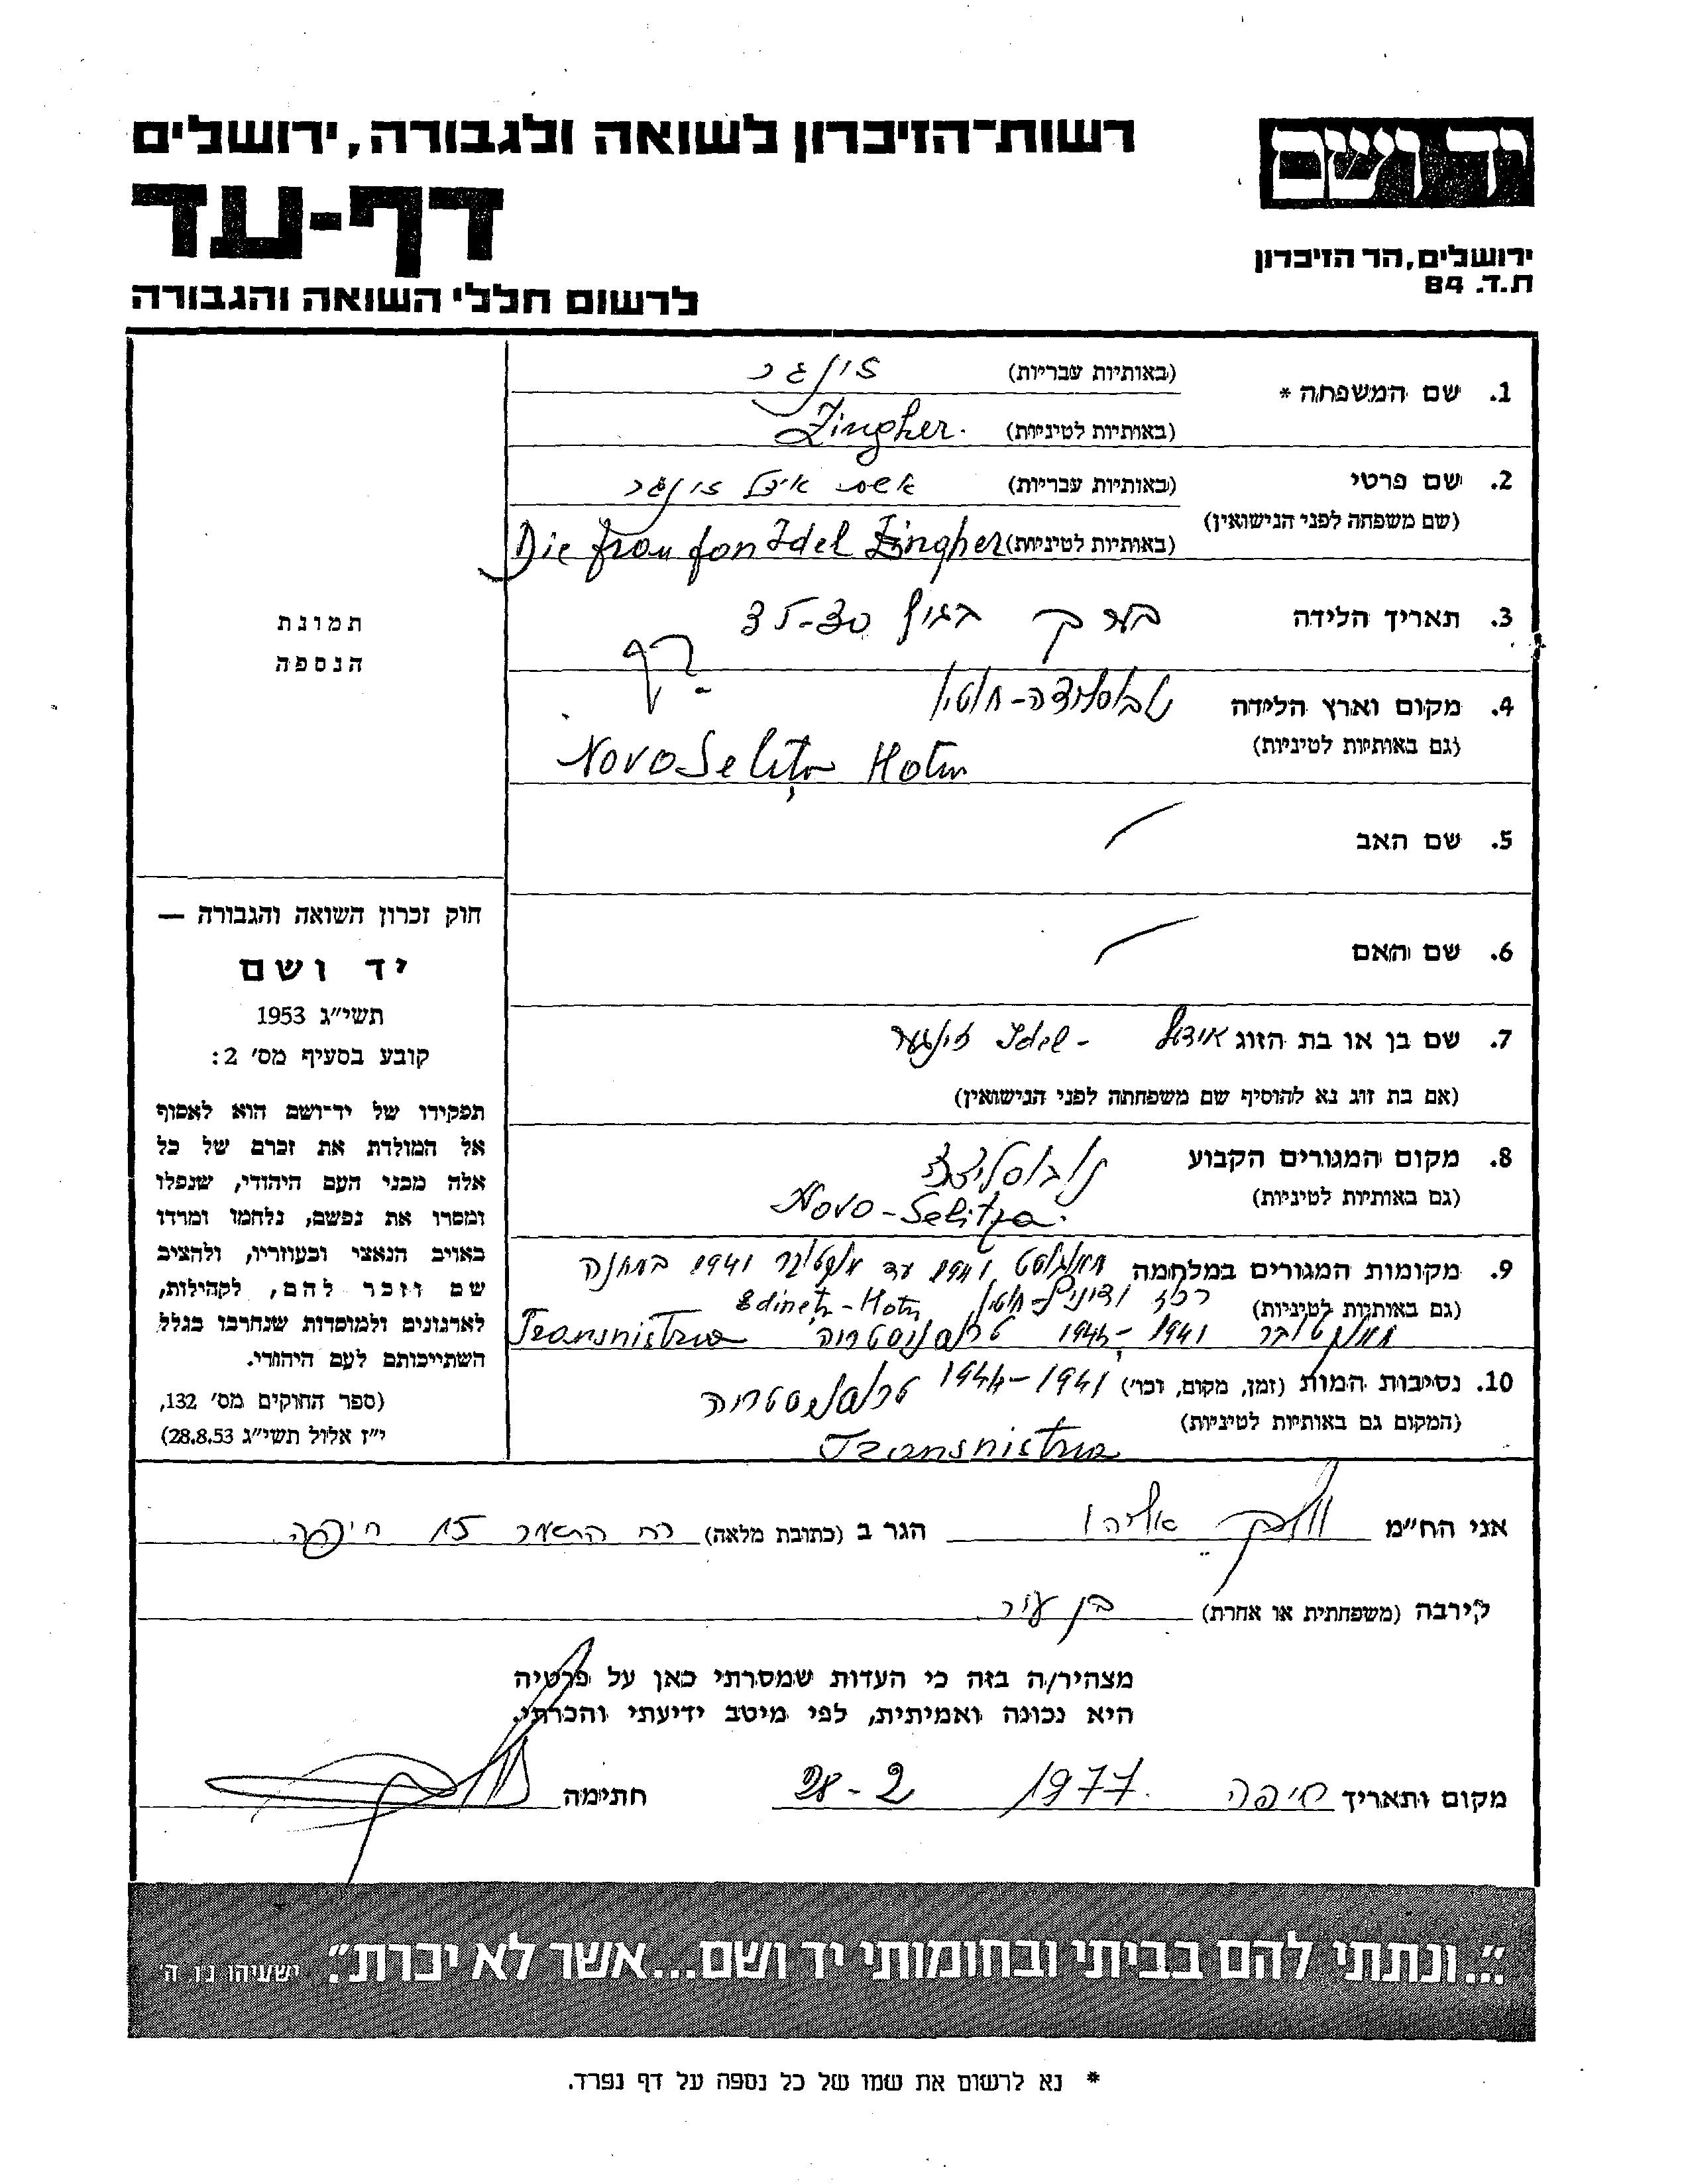 יד ושם
רשות־הזיכרון לשואה ולגבורה, ירושלים
דף-עד
ירושלים, הר הזיכרון
ת.ד. 84
לרשום חללי השואה והגבורה
1. שם המשפחה * (באותיות עבריות) זינגר
(באותיות לטיניות) Zingher.
2. שם פרטי (באותיות עבריות) אשת אידל זינגר
(שם משפחה לפני הנישואין)
(באותיות לטיניות) Die frau fon Idel Zingher
3. תאריך הלידה בערך בגיל 35-30
4. מקום וארץ הלידה נובוסליצה-חוטין
(גם באותיות לטיניות)
Novo Selitza Hotin
5. שם האב
6. שם האם
7. שם בן או בת הזוג אידל Idel - זינגער
(אם בת זוג נא להוסיף שם משפחתה לפני הנישואין)
8. מקום המגורים הקבוע נובוסליצה
(גם באותיות לטיניות) Novo-Selitza.
9. מקומות המגורים במלחמה מאוגוסט 1941 עד אוקטובר 1941 במחנה
(גם באותיות לטיניות) רכוז ידיניץ-חוטין Edinetz-Hotin
מאוקטובר 1941-1944 טרנסניסטריה Transnistria
10. נסיבות המות (זמן, מקום, וכו') 1941-1944 טרנסניסטריה
(המקום גם באותיות לטיניות)
Transnistria
תמונת
הנספה
חוק זכרון השואה והגבורה —
יד ושם
תשי״ג 1953
קובע בסעיף מס׳ 2:
תפקידו של יד־ושם הוא לאסוף
אל המולדת את זכרם של כל
אלה מבני העם היהודי, שנפלו
ומסרו את נפשם, נלחמו ומרדו
באויב הנאצי ובעוזריו, ולהציב
שם וזכר להם, לקהילות,
לארגונים ולמוסדות שנחרבו בגלל
השתייכותם לעם היהודי.
(ספר החוקים מס׳ 132,
י״ז אלול תשי״ג 28.8.53)
אני הח״מ אליהו הגר ב (כתובת מלאה) רח 15 חיפה
קירבה (משפחתית או אחרת) בן עיר
מצהיר/ה בזה כי העדות שמסרתי כאן על פרטיה
היא נכונה ואמיתית, לפי מיטב ידיעתי והכרתי.
מקום ותאריך חיפה 1977 28-2 חתימה
״...ונתתי להם בביתי ובחומותי יד ושם...אשר לא יכרת״. ישעיהו נו, ה׳
* נא לרשום את שמו של כל נספה על דף נפרד.